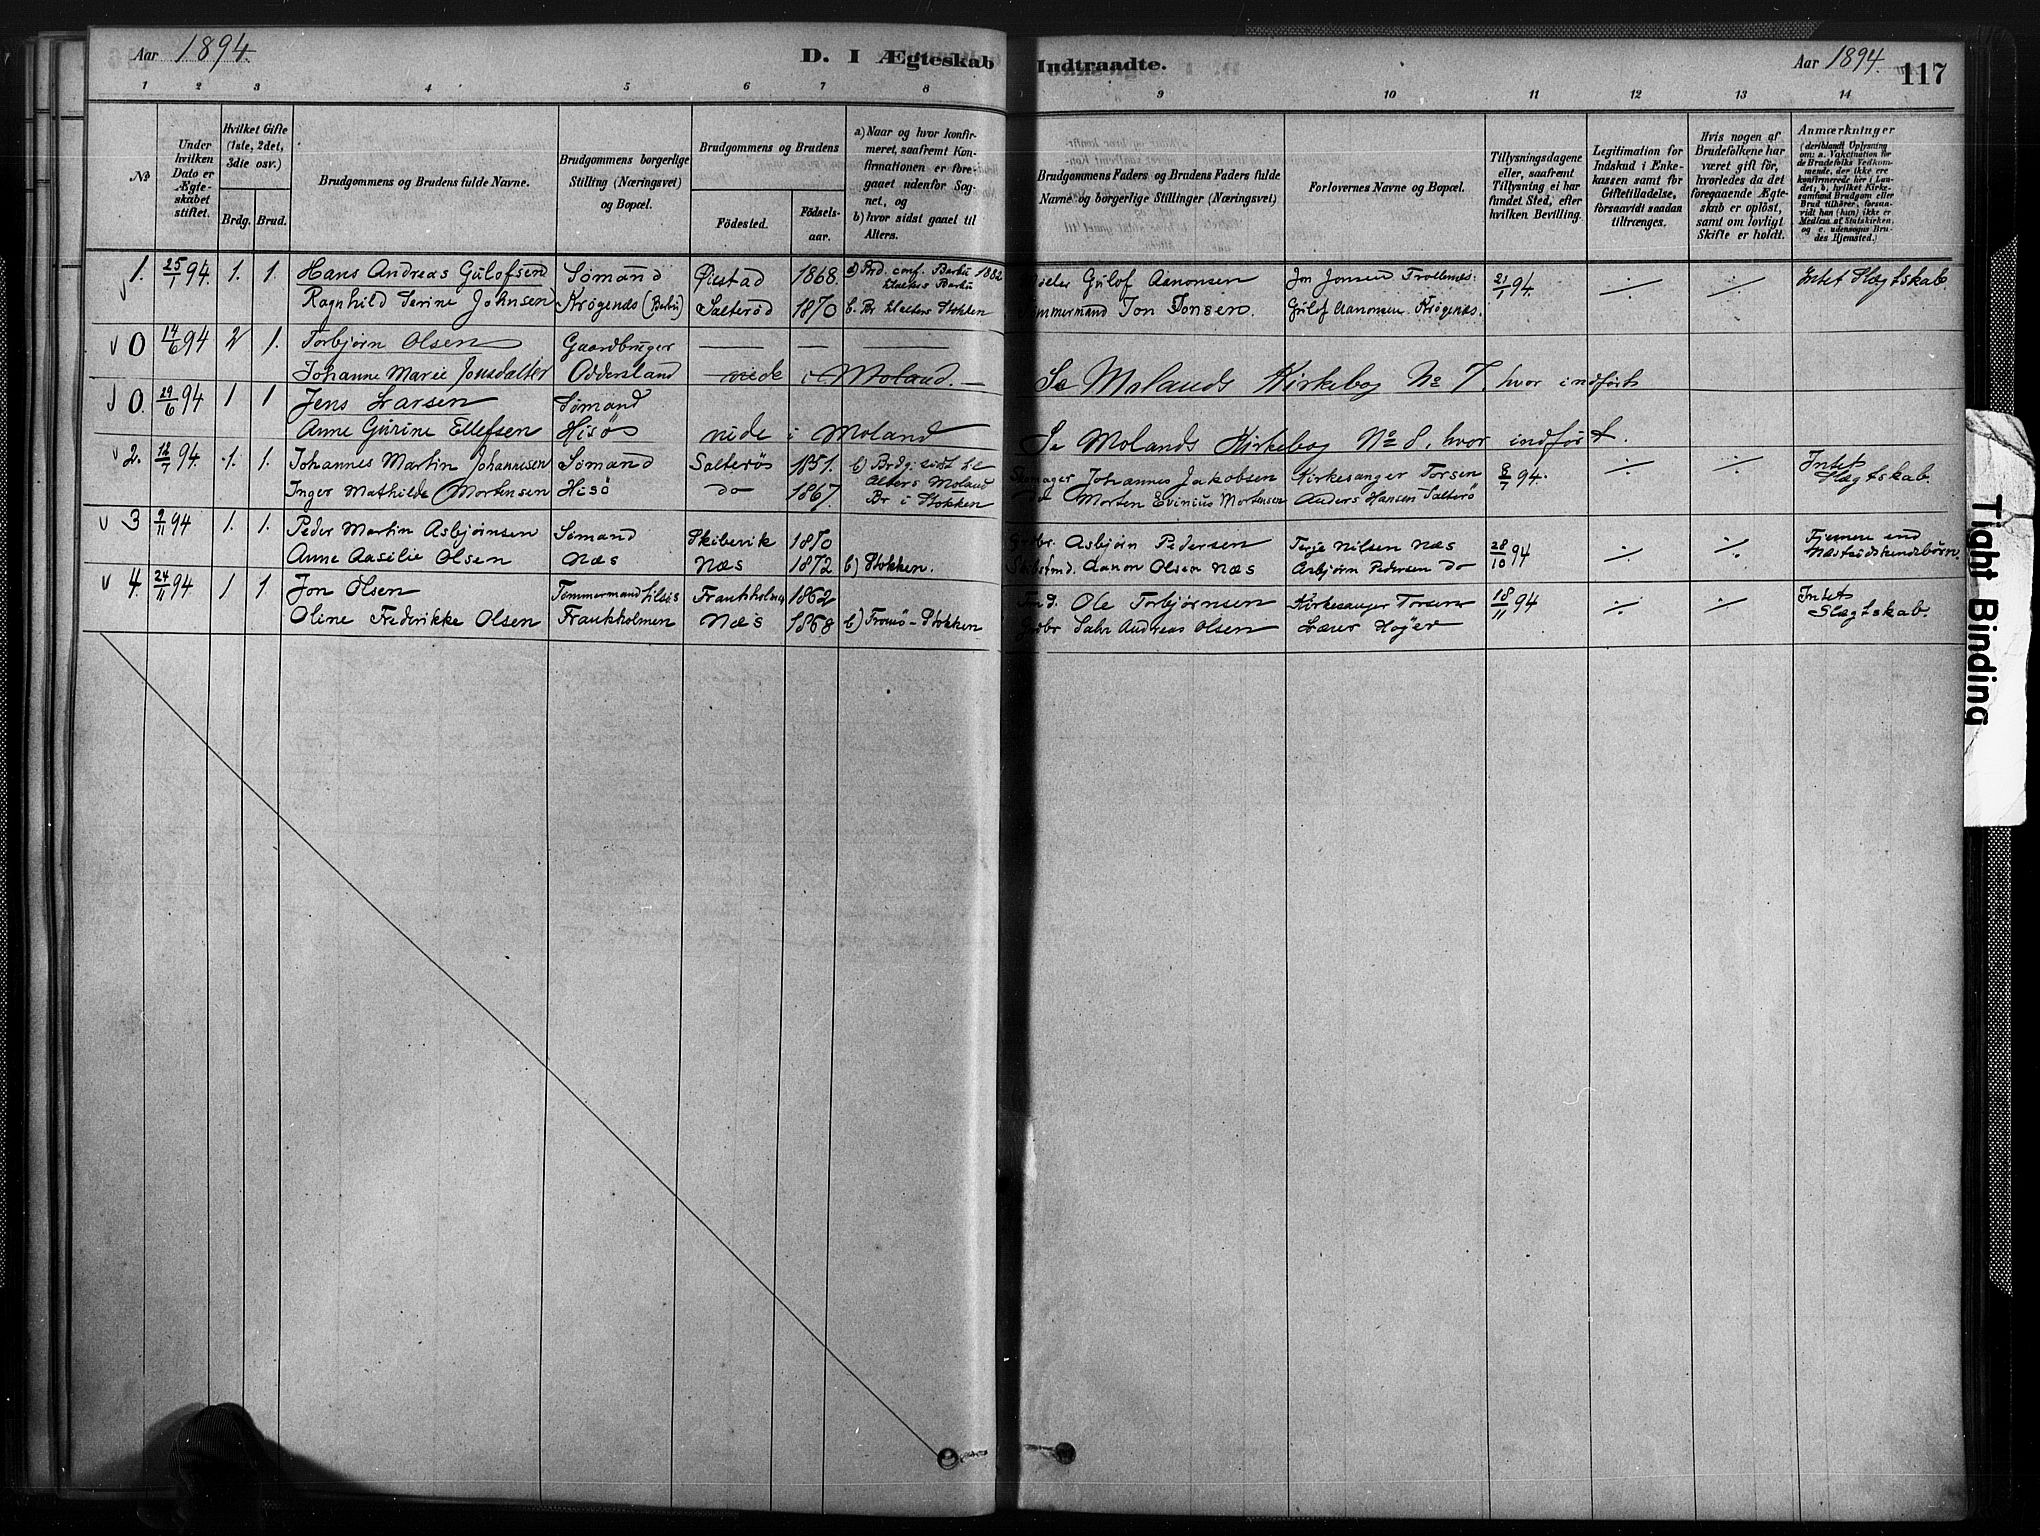 Aar 1894.
D. I Ægteskab Indtraadte.
Aar 1894.
117
1 2 3 4 5 6 7 8 9 10 11 12 13 14
No
Under hvilken Dato er Ægteskabet stiftet.
Hvilket Gifte (1ste, 2det, 3die osv.)
Brdg. Brud.
Brudgommens og Brudens fulde Navne.
Brudgommens borgerlige Stilling (Næringsvei) og Bopæl.
Brudgommens og Brudens
Födested.
Födselsaar.
a) Naar og hvor konfirmeret, saafremt Konfirmationen er foregaaet udenfor Sognet, og
b) hvor sidst gaaet til Alters.
Brudgommens Faders og Brudens Faders fulde Navne og borgerlige Stillinger (Næringsvei)
Forlovernes Navne og Bopæl.
Tillysningsdagene eller, saafremt Tillysning ei har fundet Sted, efter hvilken Bevilling.
Legitimation for Indskud i Enkekassen samt för Giftetilladelse, forsaavidt saadan tiltrænges.
Hvis nogen af Brudefolkene har været gift för, hvorledes da det foregaaende Ægteskab er oplöst, samt om lovligt Skifte er holdt.
Anmærkninger (deriblandt Oplysning om: a. Vakcination for Brudefolks Vedkommende, der ikke ere konfirmerede her i Landet; b, hvilket Kirkesamfund Brudgom eller Brud tilhörer, forsaavidt han (hun) ikke er Medlem af Statskirken, og c. udensogns Brudes Hjemsted.)
1. 25/1 94. 1. 1. Hans Andreas Gulofsend Sømand Øiestad 1868. a) Brd. conf. Barbu 1882 Møller Gulof Aanonsen Jon Jonsen Trollenæs: 21/1 94. ÷ ÷ Intet Slægtskab.
Ragnhild Serine Johnsen Krøgenes (Barbu) Salterød 1870 b. Br til alters Stokken Tømmermand Jon Jonsen. Gulof Aanonsen Krøgenæs.
0 14/6 94 2 1. Torbjørn Olsen Gaardbruger
Johanne Marie Jonsdatter Oddersland viede i Moland. Se Molands Kirkebog No 7. hvor indført
0. 29/6 94 1 1 Jens Larsen Sømand
Anne Gurine Ellefsen Hisø viede i Moland Se Molands Kirkebog No 8, hvor indført.
2. 12/7 94. 1. 1. Johannes Martin Johannesen Sømand Salterøs 1851. b) Brdg. sidst til Alters Moland Skomager Johannes Jakobsen Kirkesanger Torsen 8/7 94. ÷ ÷ Intet Slægtskab.
Inger Mathilde Mortensen Hisö do 1867. Br i Stokken do Morten Evinius Mortensen Anders Hansen Salterö
3 2/11 94 1. 1. Peder Martin Asbjørnsen Sömand Skibevik 1870 Grdbr. Asbjørn Pedersen Terje Nilsen Næs 28/10 94 ÷ ÷ Fjernere end Næstsødskendebørn.
Anne Aasilie Olsen Næs Næs 1872 b) Stokken. Skibstmd. Aanon Olsen Næs Asbjørn Pedersen do
4. 24/11 94 1 1. Jon Olsen Tømmermand Frankholmen 1862 Ole Torbjørnsen Kirkesanger Torsen 18/11 94 ÷ ÷ Intet Slægtskab.
Oline Frederikke Olsen Frankholmen Næs 1868 b) Tromö - Stokken Grdbr Andreas Olsen Lærer
Tight Binding